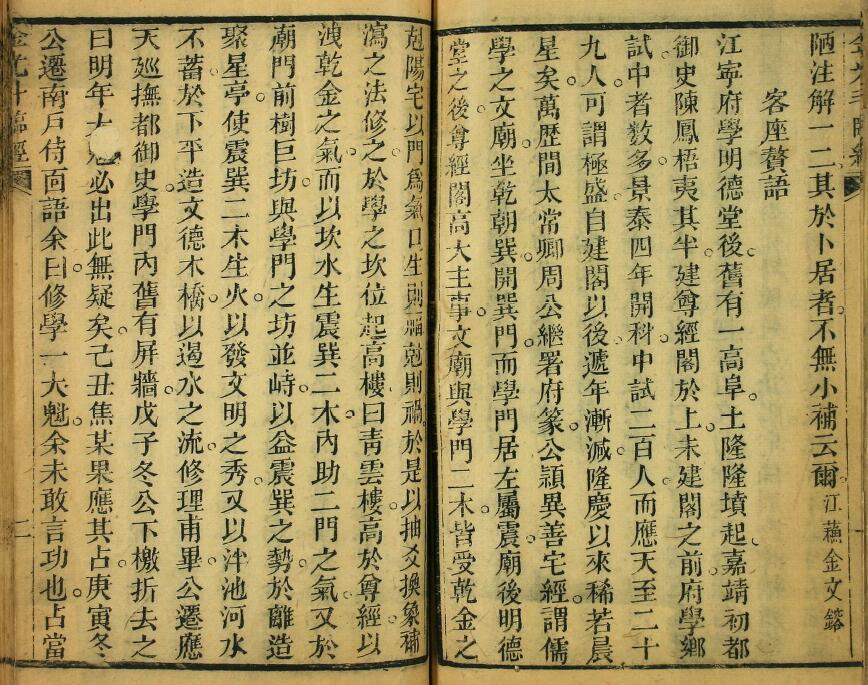 陋注解一二其於卜居者不無小補云爾江蘓金文鎔
客座贅語
江寧府學明德堂後舊有一高阜土隆隆墳起嘉靖初都
御史陳鳳梧夷其半建尊經閣於上未建閣之前府學鄉
試中者數多景泰四年開科中試二百人而應天至二十
九人可謂極盛自建閣以後遞年漸減隆慶以來稀若晨
星矣萬歷間太常卿周公繼署府篆公頴異善宅經謂儒
學之文廟坐乾朝巽開巽門而學門居左屬震廟後明德
堂之後尊經閣高大主事文廟與學門二木皆受乾金之
尅陽宅以門爲氣口生則福尅則禍於是以抽爻換象補
瀉之法修之於學之坎位起高樓曰青雲樓高於尊經以
洩乾金之氣而以坎水生震巽二木內助二門之氣又於
廟門前樹巨坊與學門之坊並峙以益震巽之勢於離造
聚星亭使震巽二木生火以發文明之秀又以泮池河水
不蓄於下平造文德木橋以遏水之流修理甫畢公遷應
天廵撫都御史學門內舊有屏牆戊子冬公下檄折去之
曰明年大魁必出此無疑矣己丑焦某果應其占庚寅冬
公遷南戶侍靣語余曰修學一大魁余未敢言功也占當